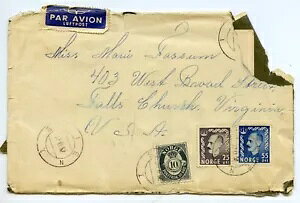 PAR AVION
LUFTPOST
Miss Marie Fossum
403 West Broad Street,
Falls Church, Virginia
U.S.A.
NORGE
10
NORGE 25
NORGE 55